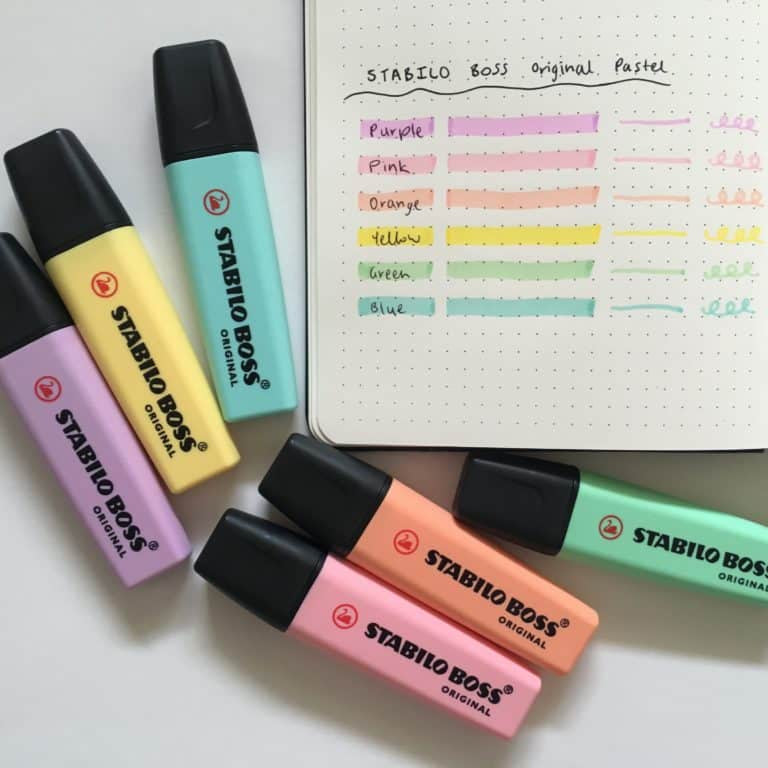 STABILO BOSS Original Pastel
Purple
Pink
Orange
Yellow
Green
Blue
STABILO BOSS®
ORIGINAL
STABILO BOSS®
ORIGINAL
STABILO BOSS®
ORIGINAL
STABILO BOSS®
ORIGINAL
STABILO BOSS
ORIGINAL
STABILO BOSS®
ORIGINAL